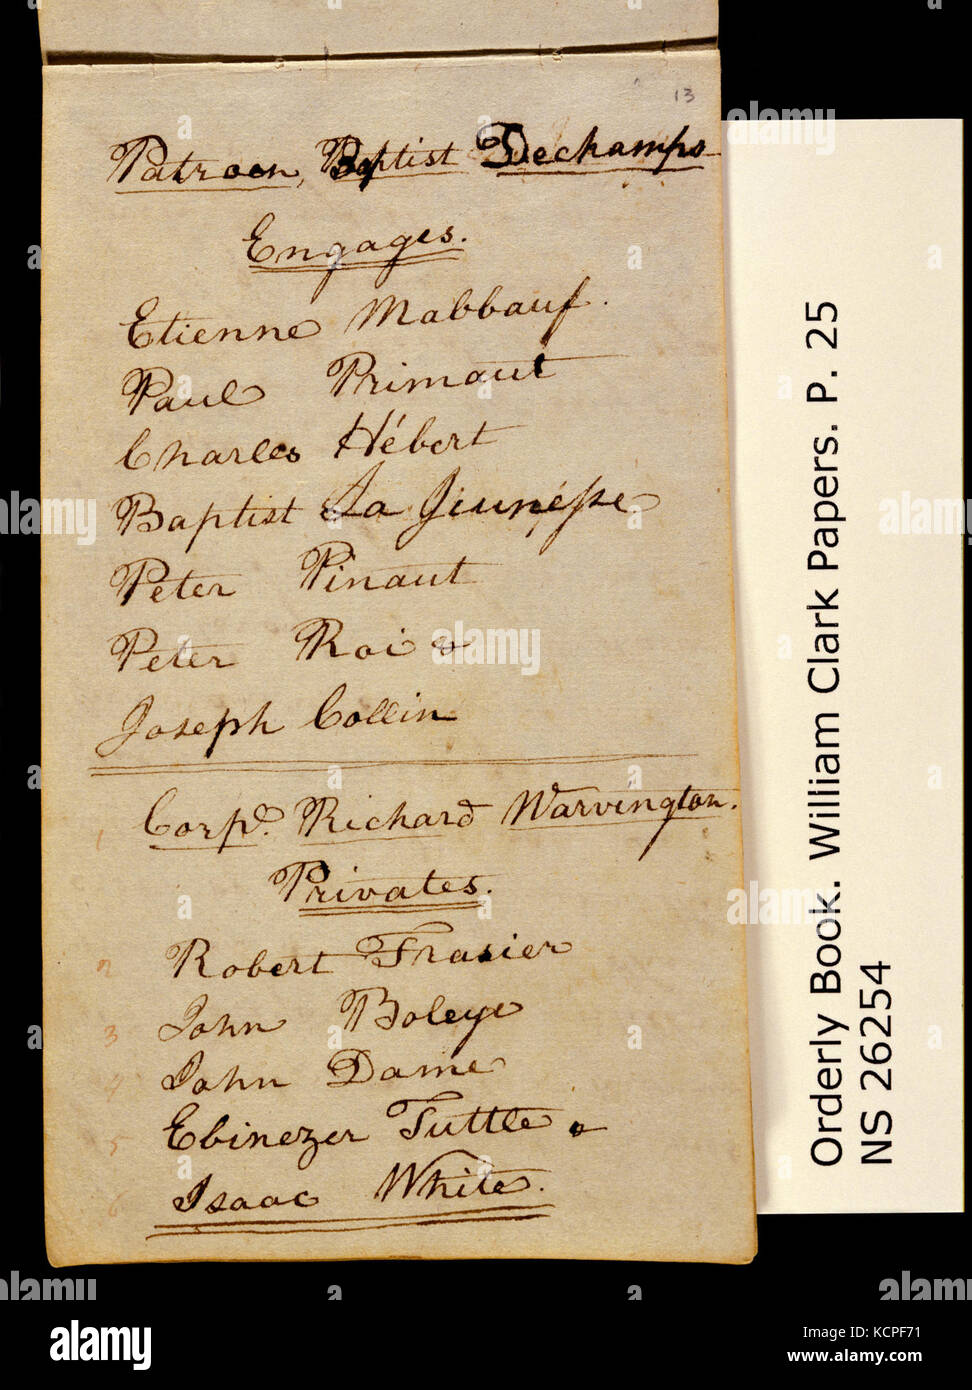 13
Patroon, Baptist Dechamps
Engages.
Etienne Mabbauf.
Paul Primaut
Charles Hébert
Baptist La Jeunesse
Peter Pinaut
Peter Roi
Joseph Collin
1 Corpl. Richard Warvington.
Privates.
2 Robert Frasier
3 John Boleye
4 John Dame
5 Ebinezer Tuttle
6 Isaac White.
Orderly Book. William Clark Papers. P. 25
NS 26254
alamy
alamy
Image ID: KCPF71
www.alamy.com